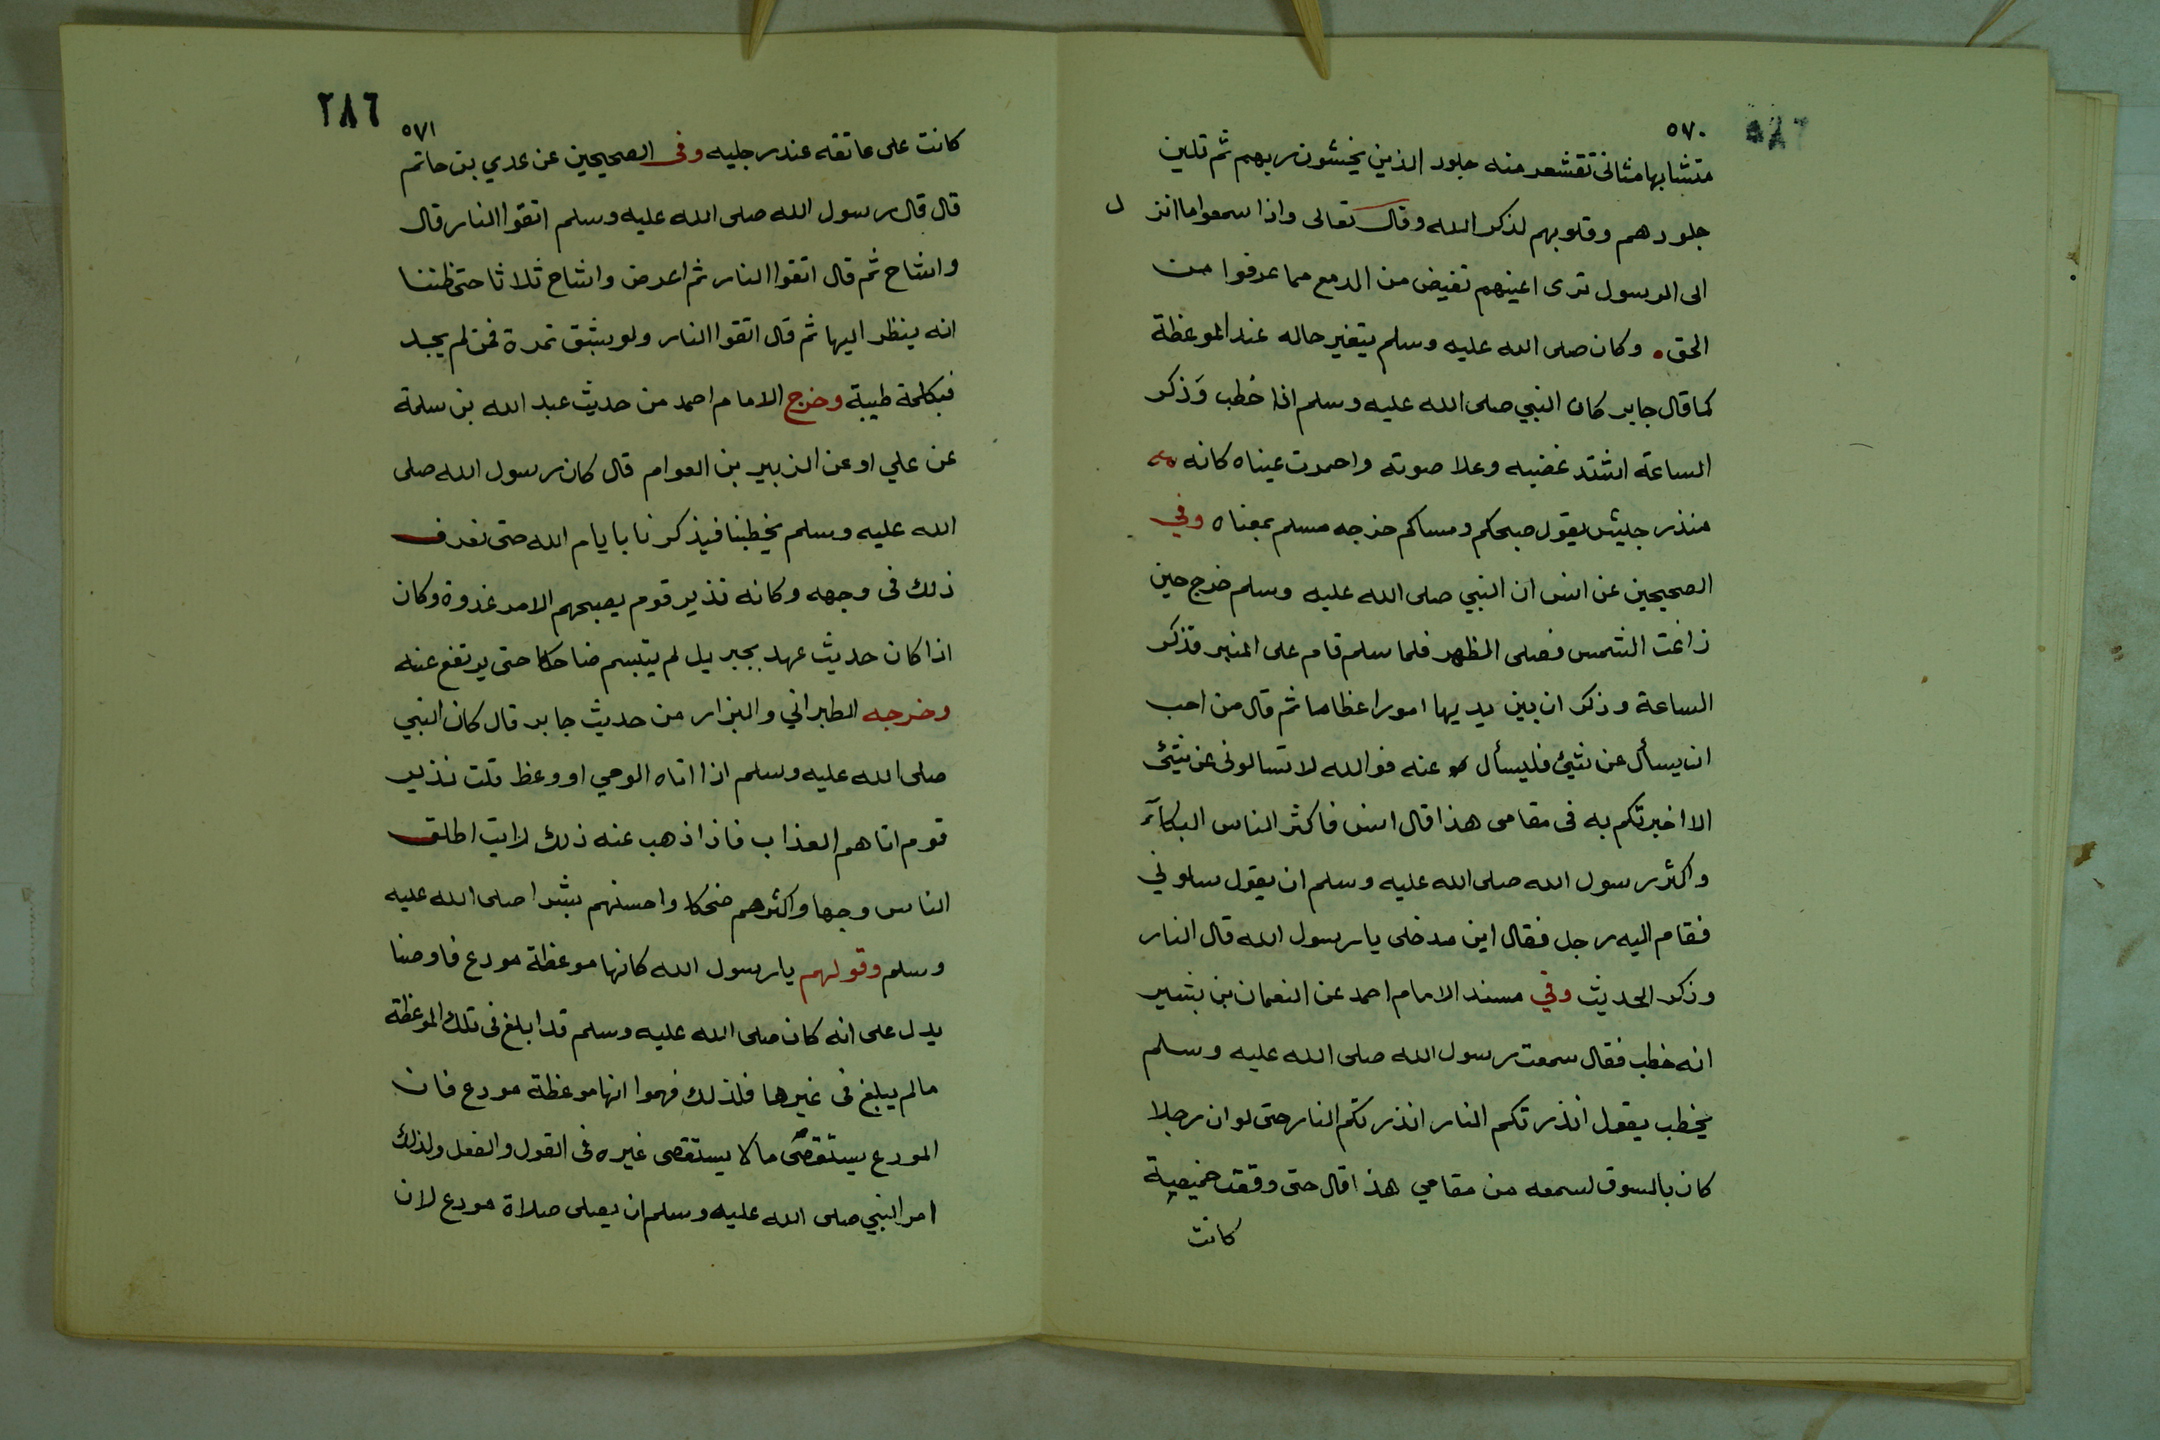 ٥٧٠
متشابها مثاني تقشعر منه جلود الذين يخشون ربهم ثم تلين
جلودهم وقلوبهم لذكر الله وقال تعالى واذا سمعوا ما انزل
الى الرسول ترى اعينهم تفيض من الدمع مما عرفوا من
الحق . وكان صلى الله عليه وسلم يتغير حاله عند الموعظة
كما قال جابر كان النبي صلى الله عليه وسلم اذا خطب وَذكر
الساعة اشتد غضبه وعلا صوته واحمرت عيناه كانه
منذر جيش يقول صبحكم ومساكم خرجه مسلم بمعناه وفي
الصحيحين عن انس ان النبي صلى الله عليه وسلم خرج حين
زاغت الشمس فصلى الظهر فلما سلم قام على المنبر فذكر
الساعة وذكر ان بين يديها امورا عظاما ثم قال من احب
ان يسأل عن شيئ فليسأل عنه فوالله لا تسالونى عن شيئ
الا اخبرتكم به فى مقامى هذا قال انس فاكثر الناس البكآء
واكثر رسول الله صلى الله عليه وسلم ان يقول سلوني
فقام اليه رجل فقال اين مدخلى يا رسول الله قال النار
وذكر الحديث وفي مسند الامام احمد عن النعمان بن بشير
انه خطب فقال سمعت رسول الله صلى الله عليه وسلم
يخطب يقول انذرتكم النار انذرتكم النار حتى لو ان رجلا
كان بالسوق لسمعه من مقامي هذا قال حتى وقعت خميصة
كانت
٢٨٦
٥٧١
كانت على عاتقه عند رجليه وفى الصحيحين عن عدي بن حاتم
قال قال رسول الله صلى الله عليه وسلم اتقوا النار قال
واشاح ثم قال اتقوا النار ثم اعرض واشاح ثلاثا حتى ظننا
انه ينظر اليها ثم قال اتقوا النار ولو بشق تمرة فمن لم يجد
فبكلمة طيبة وخرج الامام احمد من حديث عبد الله بن سلمة
عن علي او عن الزبير بن العوام قال كان رسول الله صلى
الله عليه وسلم يخطبنا فيذكرنا بايام الله حتى نعرف
ذلك فى وجهه وكانه نذير قوم يصبحهم الامر غدوة وكان
اذا كان حديث عهد بجبريل لم يتبسم ضاحكا حتى يرتفع عنه
وخرجه الطبراني والبزار من حديث جابر قال كان النبي
صلى الله عليه وسلم اذا اتاه الوحي او وعظ قلت نذير
قوم اتاهم العذاب فاذا ذهب عنه ذلك رايت اطلق
الناس وجها واكثرهم ضحكا واحسنهم بشرا صلى الله عليه
وسلم وقولهم يا رسول الله كانها موعظة مودع فاوصنا
يدل على انه كان صلى الله عليه وسلم قد ابلغ فى تلك الموعظة
مالم يبلغ فى غيرها فلذلك فهموا انها موعظة مودع فان
المودع يستقصى ما لا يستقصى غيره فى القول والفعل ولذلك
امر النبي صلى الله عليه وسلم ان يصلى صلاة مودع لان